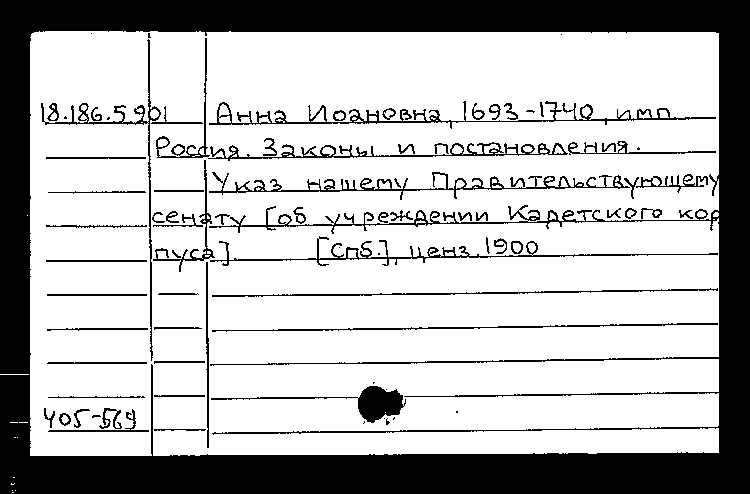 18.186.5.201 Анна Иоановна, 1693-1740, имп.
Россия. Законы и постановления.
Указ нашему Правительствующему
сенату [об учреждении Кадетского кор
пуса]. [Спб.], ценз. 1900
405-569